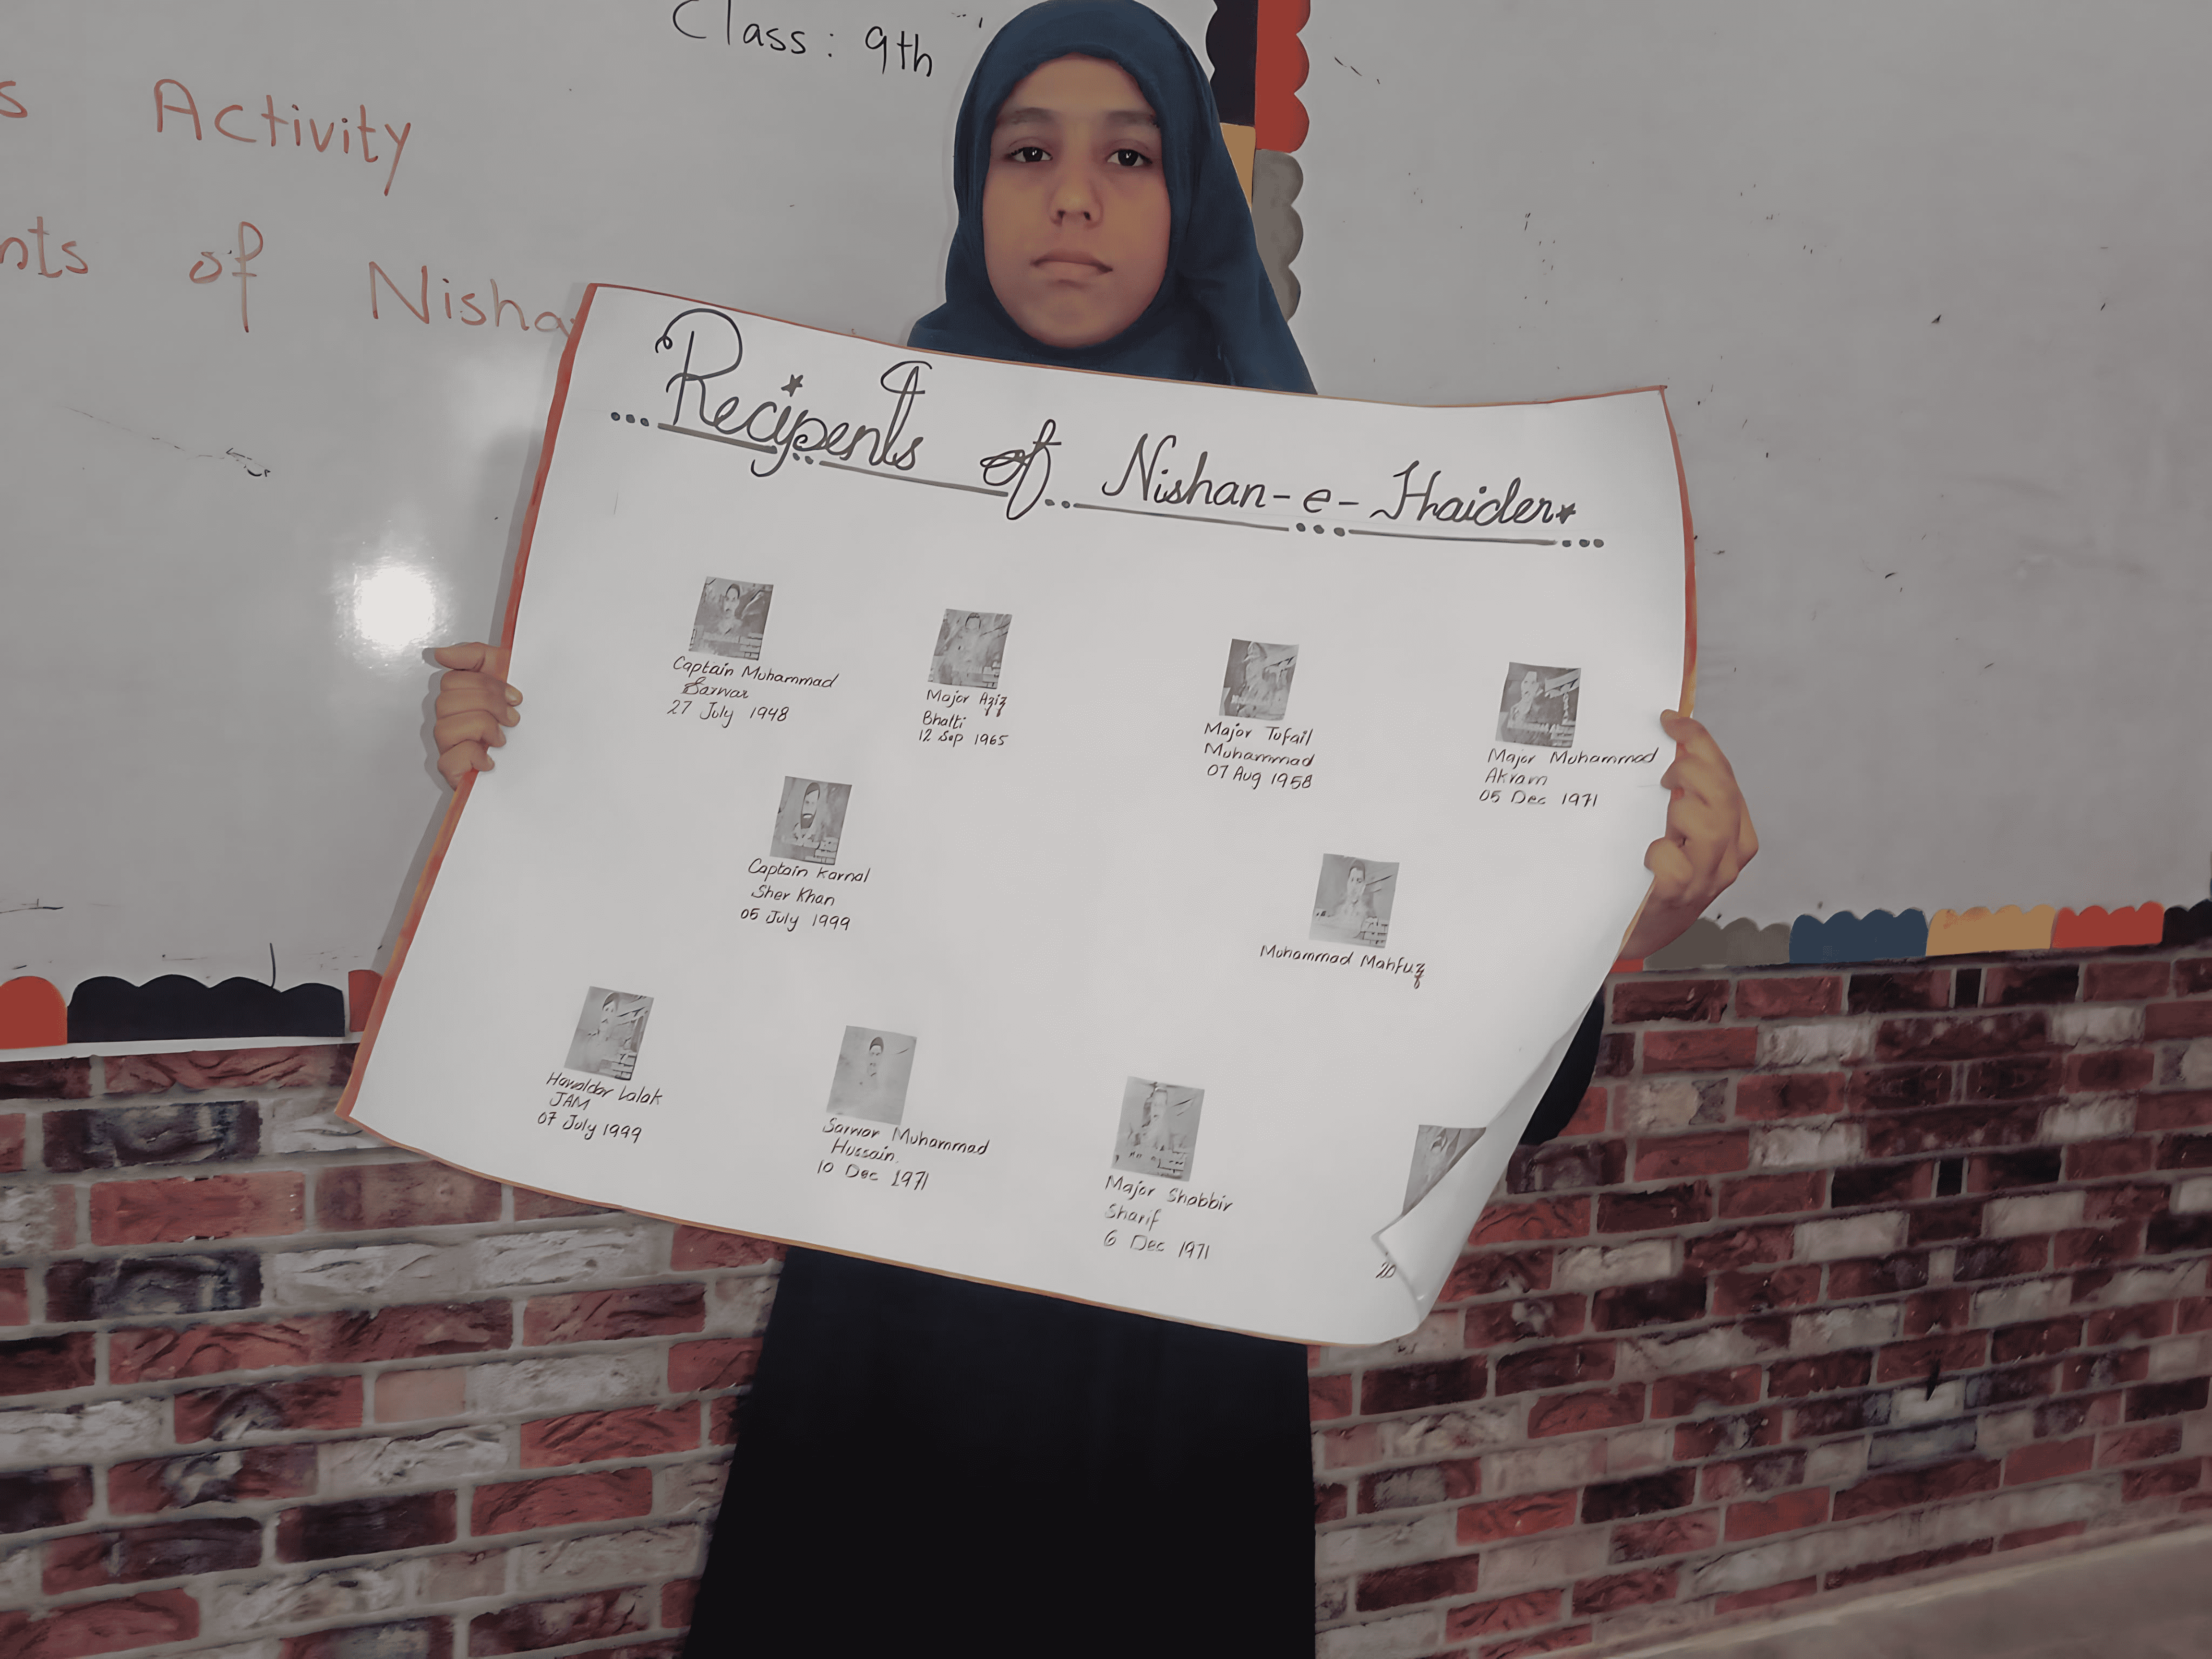 Class: 9th
s Activity
nts of Nisha
Recipents of Nishan-e-Haider
Captain Muhammad
Sarwar
27 July 1948
Major Aziz
Bhatti
12 Sep 1965
Major Tufail
Muhammad
07 Aug 1958
Major Muhammad
Akram
05 Dec 1971
Captain Karnal
Sher Khan
05 July 1999
Muhammad Mahfuz
Hawaldar Lalak
JAM
07 July 1999
Sarwar Muhammad
Hussain.
10 Dec 1971
Major Shabbir
Sharif
6 Dec 1971
20